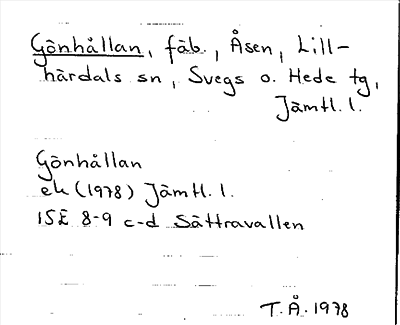 Gönhållan, fäb., Åsen, Lill-
härdals sn, Svegs o. Hede tg,
Jämtl. l.
Gönhållan
ek (1978) Jämtl. l.
15E 8-9 c-d Sättravallen
T.Å. 1978